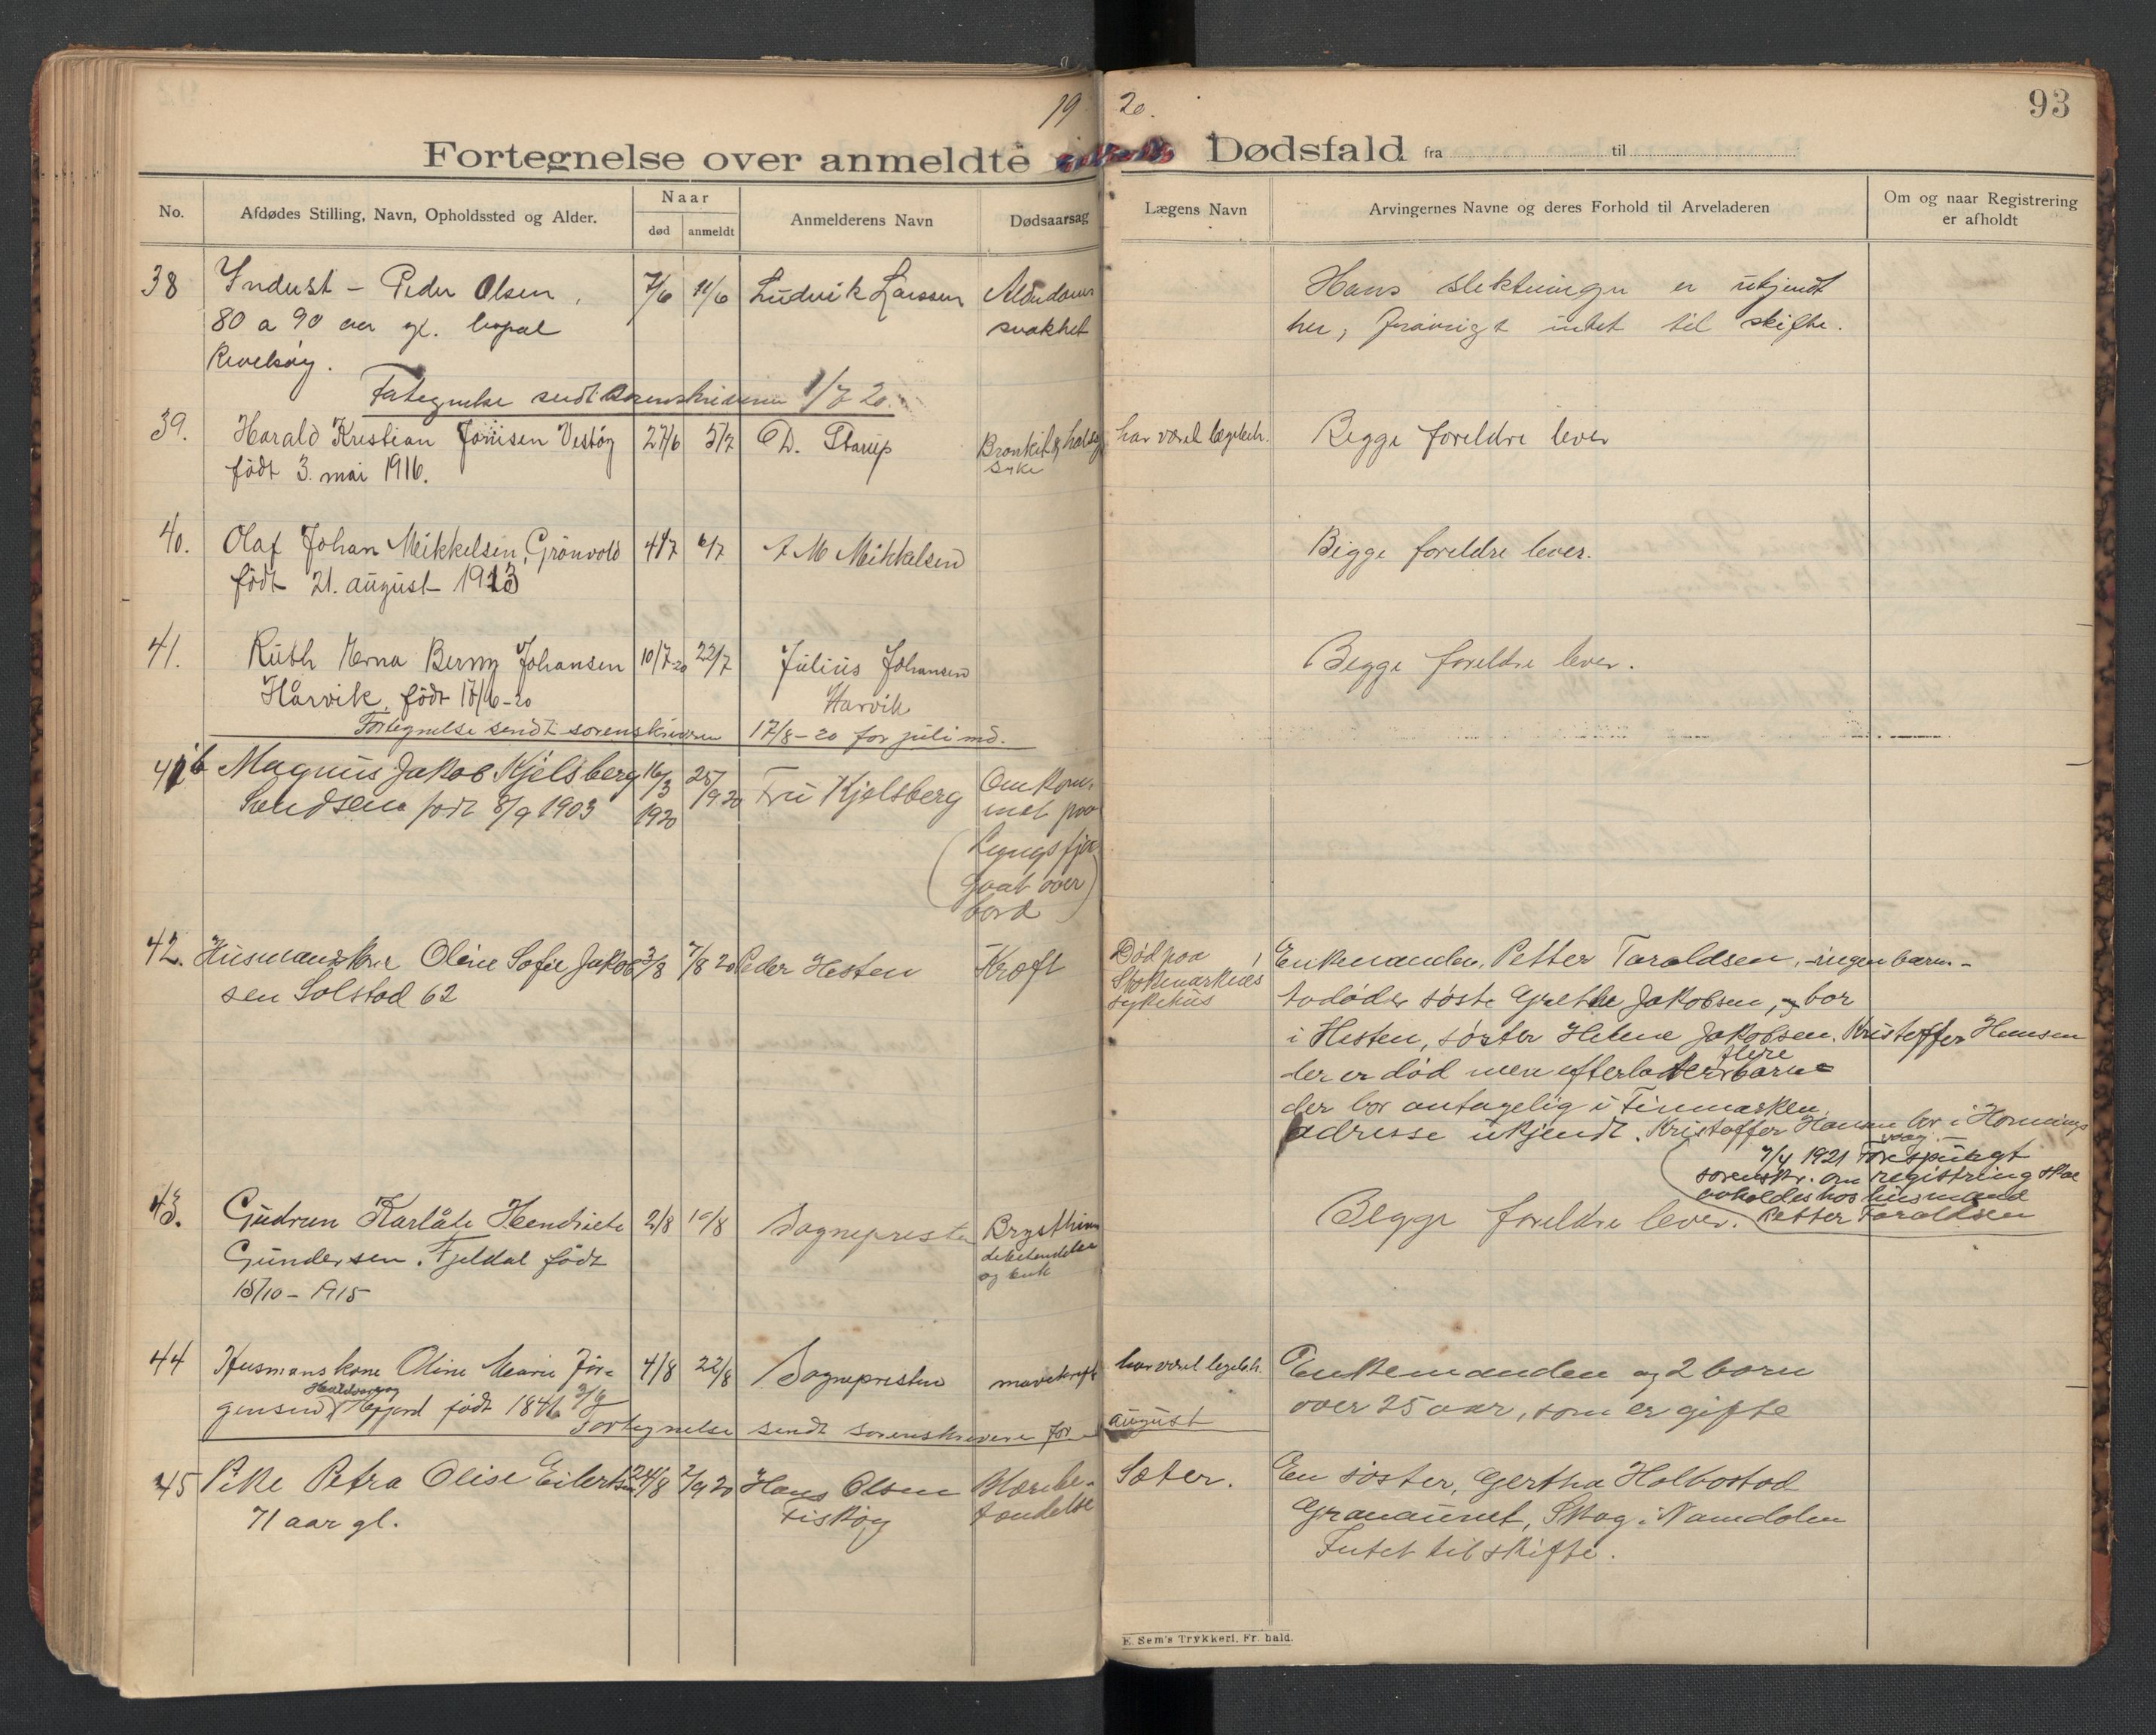 19 20.
93
Fortegnelse over anmeldte Dødsfald fra til
No.
Afdødes Stilling, Navn, Opholdssted og Alder.
Naar
død
anmeldt
Anmelderens Navn
Dødsaarsag
Lægens Navn
Arvingernes Navne og deres Forhold til Arveladeren
Om og naar Registrering
er afholdt
38 Indust – Peder Olsen, 7/6 11/6 Ludvik Larssen Alderdoms Hans slektninger er ukjendt
80 a 90 aar gl. svakhet her, forøvrigt intet til skifte.
Fortegnelse sendt sorenskriveren 1/7 20.
39. Harald Kristian Jonsen Vestøy 27/6 5/7 Bronkit & hals har været lægebeh. Begge foreldre lever
født 3. mai 1916. syke
40. Olaf Johan Mikkelsen, Grönvold 4/7 6/7 A M Mikkelsen Begge foreldre lever.
født 21. august 1913
41. Ruth Erna Berny Johansen 10/7-20 22/7 Julius Johansen Begge foreldre lever.
Hårvik, født 17/6-20 Harvik
Fortegnelse sendt sorenskriveren 17/8-20 for juli md.
41b Magnus Jakob Kjelsberg 16/3 25/9 20 Fru Kjelsberg Omkom-
Svendsen født 8/9 1903 1920 met paa
Lyngsfjor
(gaat over
bord)
42. Husmanskone Oline Sofie Jakob 3/8 7/8 20 Peder Hesten Kræft Død paa Enkemanden, Petter Taraldsen, -ingen barn-
sen Solstad 62 Stokmarknes avdødes søster Grethe Jakobsen, bor
sykehus i Hesten, søster Helene Jakobsen. Kristoffer Hansen
der er død men efterlater flere barn
der bor antagelig i Finmarken,
adresse ukjendt. Kristoffer Hansen bor i Hornings
vaag. –
7/4 1921 Forespurgt
sorenskr. om registrering skal
avholdes hos husmand
Petter Taraldsen
43. Gudrun Karlåte Hendriete 2/8 10/8 Sognepresten Brysthin Begge foreldre lever.
Gundersen. Fjeldal født debetendelse
15/10 – 1915 og
44 Husmanskone Oline Marie Jör= 4/8 22/8 Sognepresten mavekreft har været legebeh. Enkemanden og 2 barn
gensen Hefjord født 1846 3/6 over 25 aar, som er gifte
Fortegnelse sendt sorenskriveren for august
45 Pike Petra Olise Eilertsen 24/8 2/9 20 Hans Olsen Blærebe- Sæter. En søster, Gertha Holbostad
71 aar gl. Fiskøy tendelse Granaunet, Skog i Namdalen
Intet til skifte.
E. Sem's Trykkeri, Fr.hald.